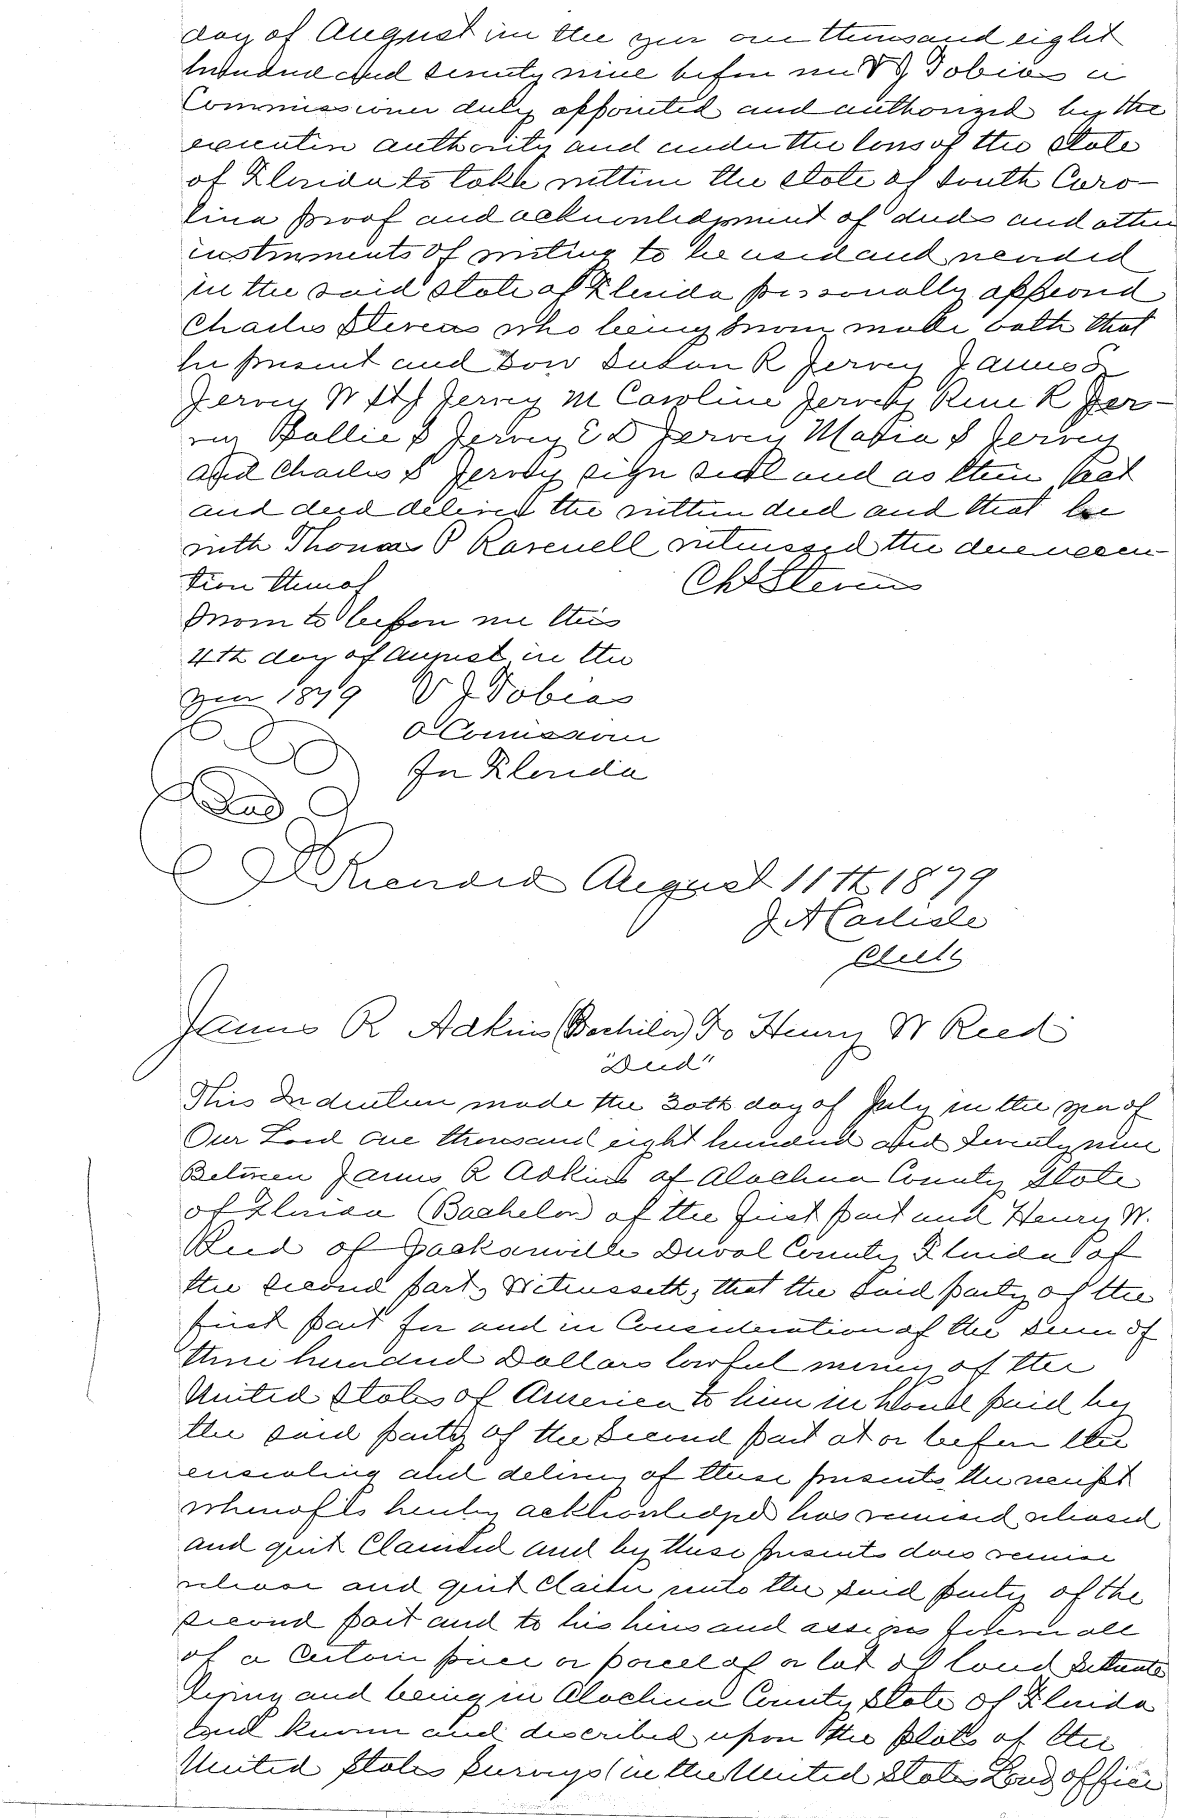 day of August in the year one thousand eight
hundred and seventy nine before me V J Tobias a
Commissioner duly appointed and authorized by the
executive authority and under the laws of the State
of Florida to take within the State of South Caro-
lina proof and acknowledgment of deeds and other
instruments of writing to be used and recorded
in the said State of Florida personally appeared
Charles Stevens who being sworn made oath that
he present and saw Susan R Jervey James L
Jervey W St J Jervey M Caroline Jervey Rene R Jer-
vey Hallie S Jervey E D Jervey Maria S Jervey
and Charles S Jervey sign seal and as their act
and deed deliver the within deed and that he
with Thomas P Ravenell witnessed the due execu-
tion thereof Chs Stevens
Sworn to before me this
4th day of August in the
year 1879 V J Tobias
a Comissioner
For Florida
Seal
Recorded August 11th 1879
J A Carlisle
Clerk
James R Adkins (Bachelor) To Henry W Reed
"Deed"
This Indenture made the 30th day of July in the year of
Our Lord one thousand eight hundred and Seventy nine
Between James R Adkins of Alachua County State
of Florida (Bachelor) of the first part and Henry W.
Reed of Jacksonville Duval County Florida of
the second part, Witnesseth, that the Said party of the
first part for and in Consideration of the Sum of
three hundred Dollars lawful money of the
United States of America to him in hand paid by
the said party of the Second part at or before the
ensealing and delivery of these presents the receipt
whereof is hereby acknowledged has remised released
and quit Claimed and by these presents does remise
release and quit Claim unto the said party of the
second part and to his heirs and assigns forever all
of a Certain piece or parcel of or lot of land Situate
lying and being in Alachua County State of Florida
and known and described upon the plats of the
United States Surveys (in the United States Land office